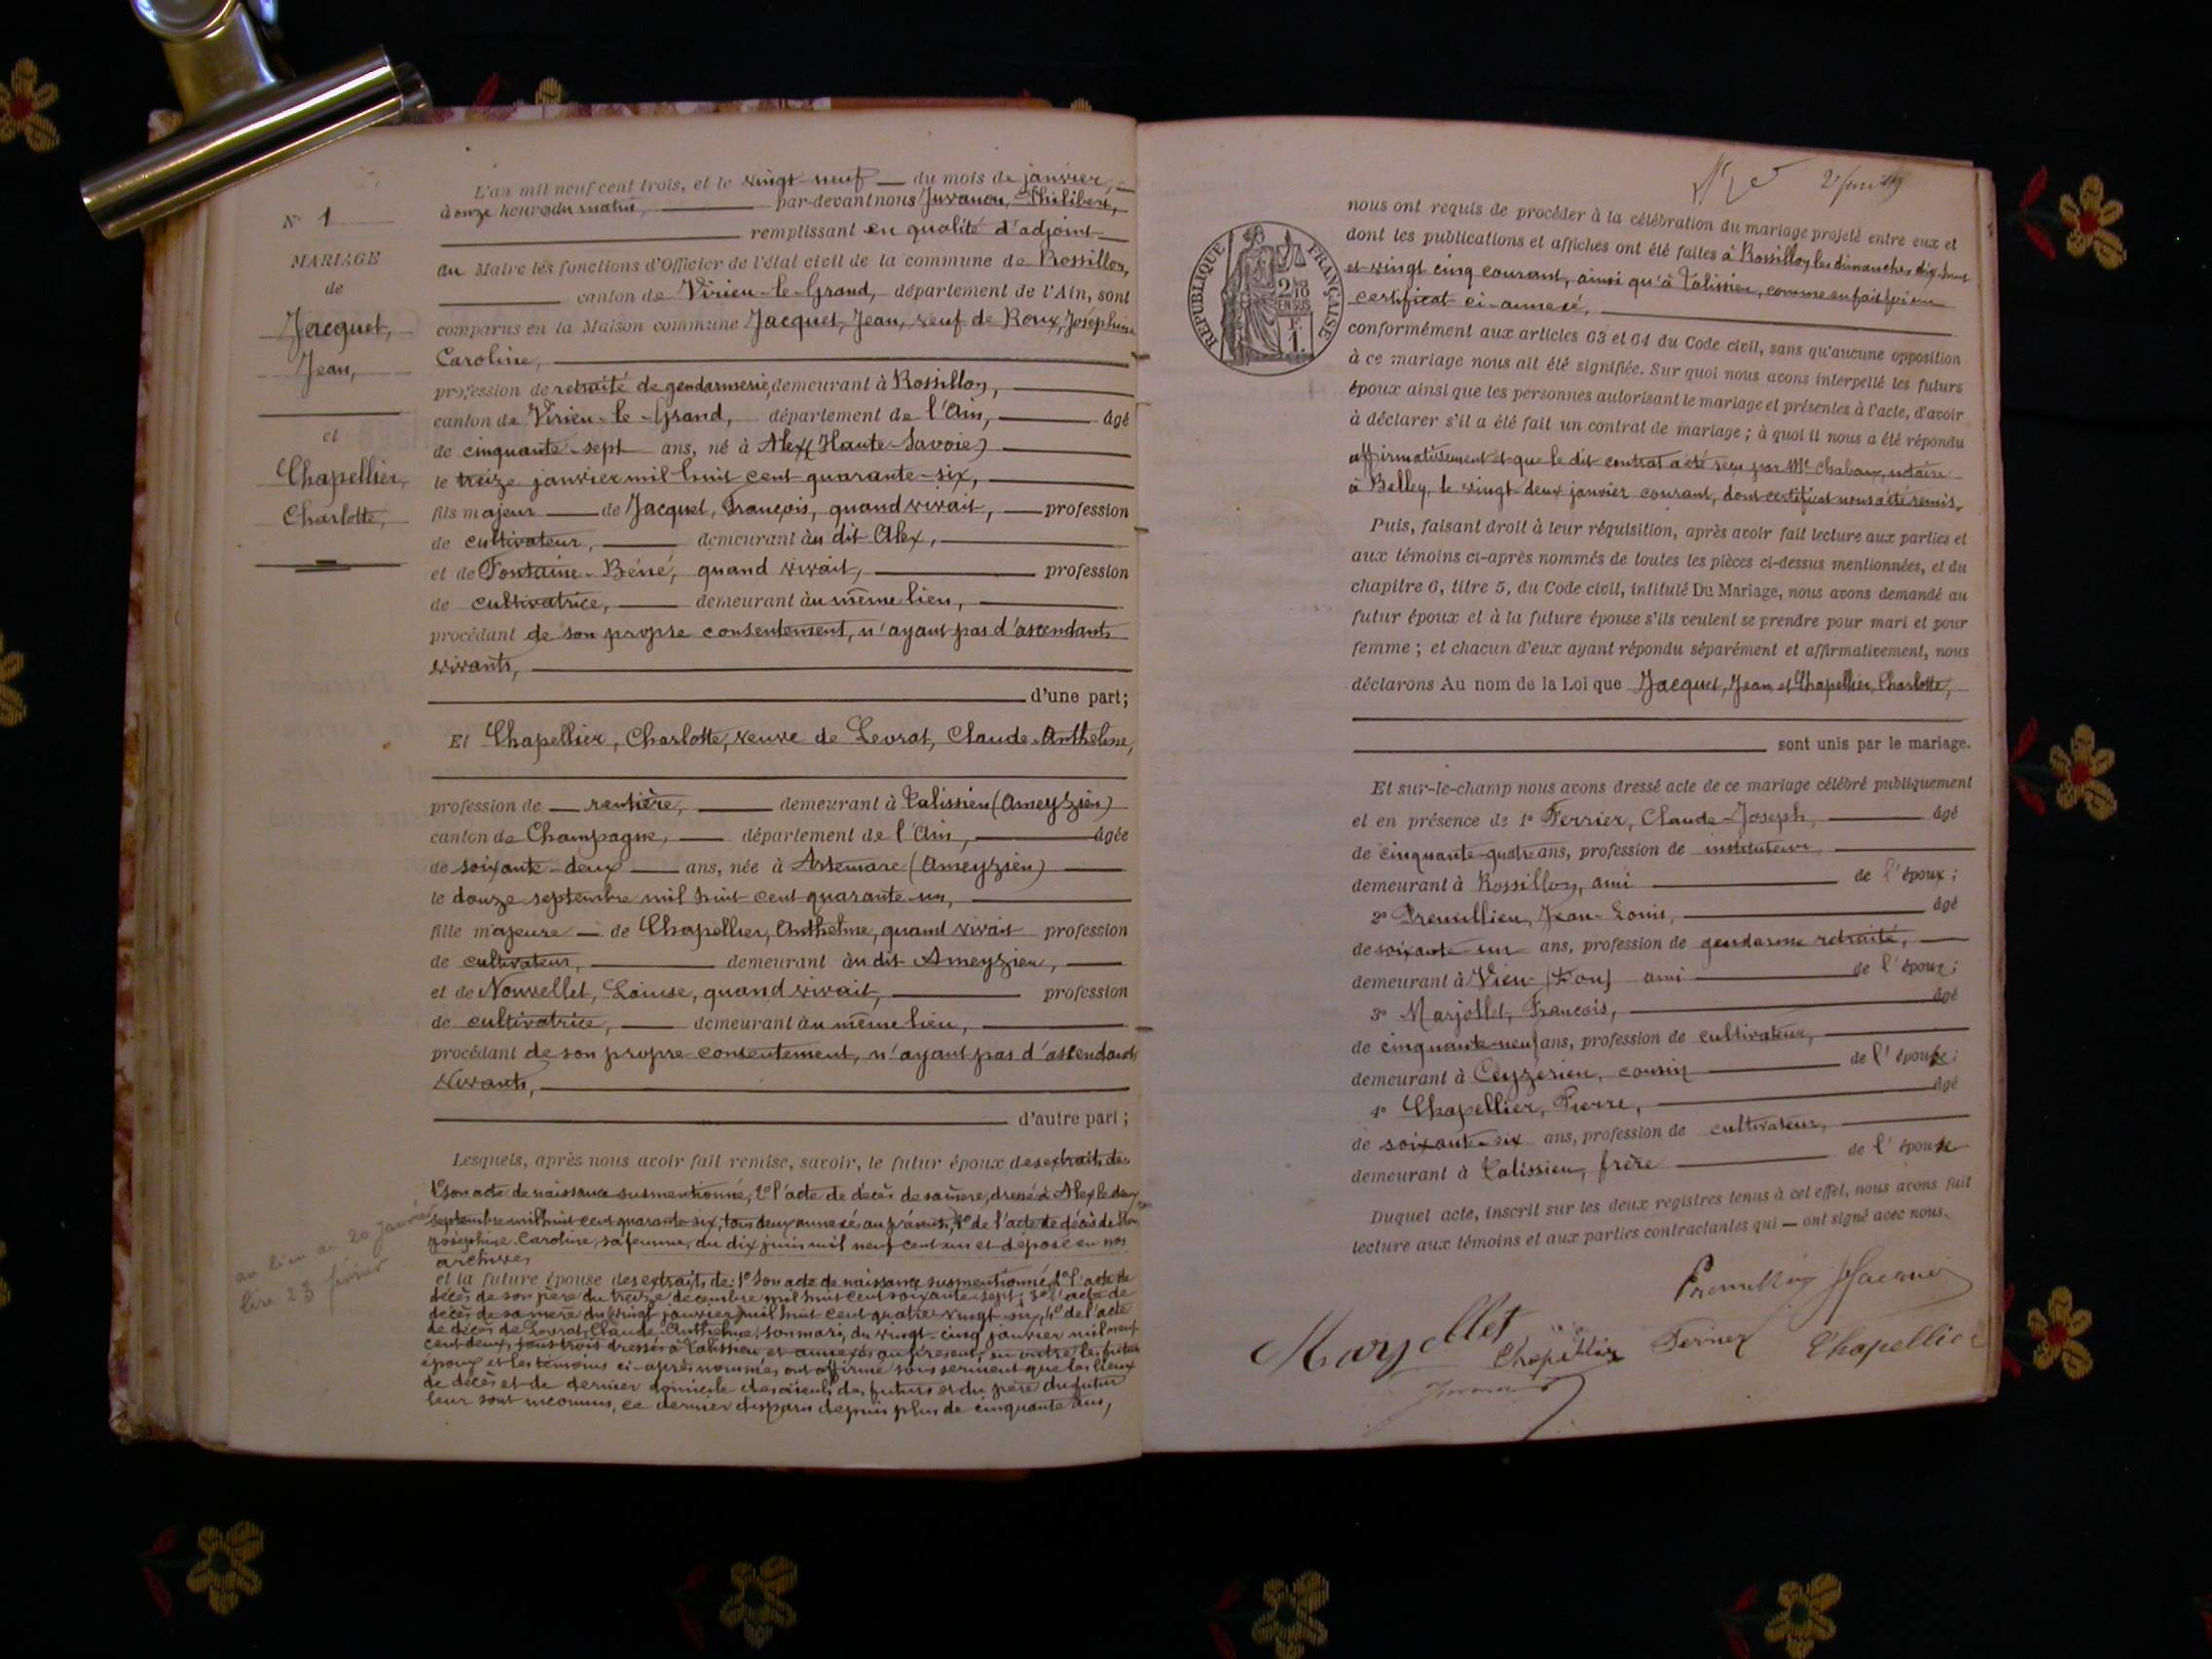 N° 1
MARIAGE
de
Jacquet,
Jean,
et
Chapellier,
Charlotte,
au lieu de 20 janvier
lire 23 février
L'an mil neuf cent trois, et le vingt-neuf du mois de janvier,
à onze heures du matin, par-devant nous Juvanon, Philibert,
remplissant en qualité d'adjoint
au Maire les fonctions d'Officier de l'état civil de la commune de Rossillon,
canton de Virieu-le-Grand, département de l'Ain, sont
comparus en la Maison commune Jacquet, Jean, veuf de Roux, Joséphine
Caroline,
profession de retraité de gendarmerie, demeurant à Rossillon,
canton de Virieu-le-Grand, département de l'Ain, âgé
de cinquante-sept ans, né à Alex (Haute-Savoie)
le treize janvier mil huit cent quarante-six,
fils majeur de Jacquet, François, quand vivait, profession
de cultivateur, demeurant au dit Alex,
et de Fontaine, quand vivait, profession
de cultivatrice, demeurant au même lieu,
procédant de son propre consentement, n'ayant pas d'ascendants
vivants,
d'une part;
Et Chapellier, Charlotte, veuve de Levrat, Claude-Anthelme,
profession de rentière, demeurant à Talissieu (Ameyzieu)
canton de Champagne, département de l'Ain, âgée
de soixante-deux ans, née à Artemare (Ameyzieu)
le douze septembre mil huit cent quarante-un,
fille majeure de Chapellier, Anthelme, quand vivait profession
de cultivateur, demeurant au dit Ameyzieu,
et de Nouvellet, Louise, quand vivait, profession
de cultivatrice, demeurant au même lieu,
procédant de son propre consentement, n'ayant pas d'ascendants
vivants,
d'autre part;
Lesquels, après nous avoir fait remise, savoir, le futur époux des extraits de:
1° son acte de naissance susmentionné, 2° l'acte de décès de sa mère, dressé à Alex le deux
septembre mil huit cent quarante-six, tous deux annexé au présent, 3° de l'acte de décès de Roux
Joséphine-Caroline, sa femme, du dix juin mil neuf cent un et déposé en nos
archives
et la future épouse des extraits de: 1° son acte de naissance susmentionné, 2° l'acte de
décès de son père du treize décembre mil huit cent soixante-sept; 3° l'acte de
décès de sa mère du vingt janvier mil huit cent quatre-vingt-un, 4° de l'acte
de décès de Levrat, Claude-Anthelme, son mari, du vingt-cinq janvier mil neuf
cent deux, tous trois dressés à Talissieu et annexés au présent, en outre les futurs
époux et les témoins ci-après nommés, ont affirmé sous serment que les lieux
de décès et de dernier domicile des aïeuls des futurs et du père du futur
leur sont inconnus, ce dernier disparu depuis plus de cinquante ans,
REPUBLIQUE FRANÇAISE
2/10
EN SUS
F.
1.
nous ont requis de procéder à la célébration du mariage projeté entre eux et
dont les publications et affiches ont été faites à Rossillon les dimanches dix-huit
et vingt cinq courant, ainsi qu'à Talissieu, comme en fait foi un
certificat ci-annexé,
conformément aux articles 63 et 64 du Code civil, sans qu'aucune opposition
à ce mariage nous ait été signifiée. Sur quoi nous avons interpellé les futurs
époux ainsi que les personnes autorisant le mariage et présentes à l'acte, d'avoir
à déclarer s'il a été fait un contrat de mariage; à quoi il nous a été répondu
affirmativement et que le dit contrat a été reçu par Me Chabaux, notaire
à Belley, le vingt-deux janvier courant, dont certificat nous a été remis.
Puis, faisant droit à leur réquisition, après avoir fait lecture aux parties et
aux témoins ci-après nommés de toutes les pièces ci-dessus mentionnées, et du
chapitre 6, titre 5, du Code civil, intitulé Du Mariage, nous avons demandé au
futur époux et à la future épouse s'ils veulent se prendre pour mari et pour
femme; et chacun d'eux ayant répondu séparément et affirmativement, nous
déclarons Au nom de la Loi que Jacquet, Jean, et Chapellier, Charlotte,
sont unis par le mariage.
Et sur-le-champ nous avons dressé acte de ce mariage célébré publiquement
et en présence de 1° Ferrier, Claude-Joseph, âgé
de cinquante-quatre ans, profession de instituteur,
demeurant à Rossillon, ami de l'époux;
2° Premillieu, Jean-Louis, âgé
de soixante-un ans, profession de gendarme retraité,
demeurant à Vieu ami de l'époux;
3° Marjollet, François, âgé
de cinquante-neuf ans, profession de cultivateur,
demeurant à Ceyzerieu, cousin de l'épouse;
4° Chapellier, Pierre, âgé
de soixante-six ans, profession de cultivateur,
demeurant à Talissieu, frère de l'épouse
Duquel acte, inscrit sur les deux registres tenus à cet effet, nous avons fait
lecture aux témoins et aux parties contractantes qui ont signé avec nous.
Premillieu Jacquet
Marjollet Chapellier Ferrier Chapellier